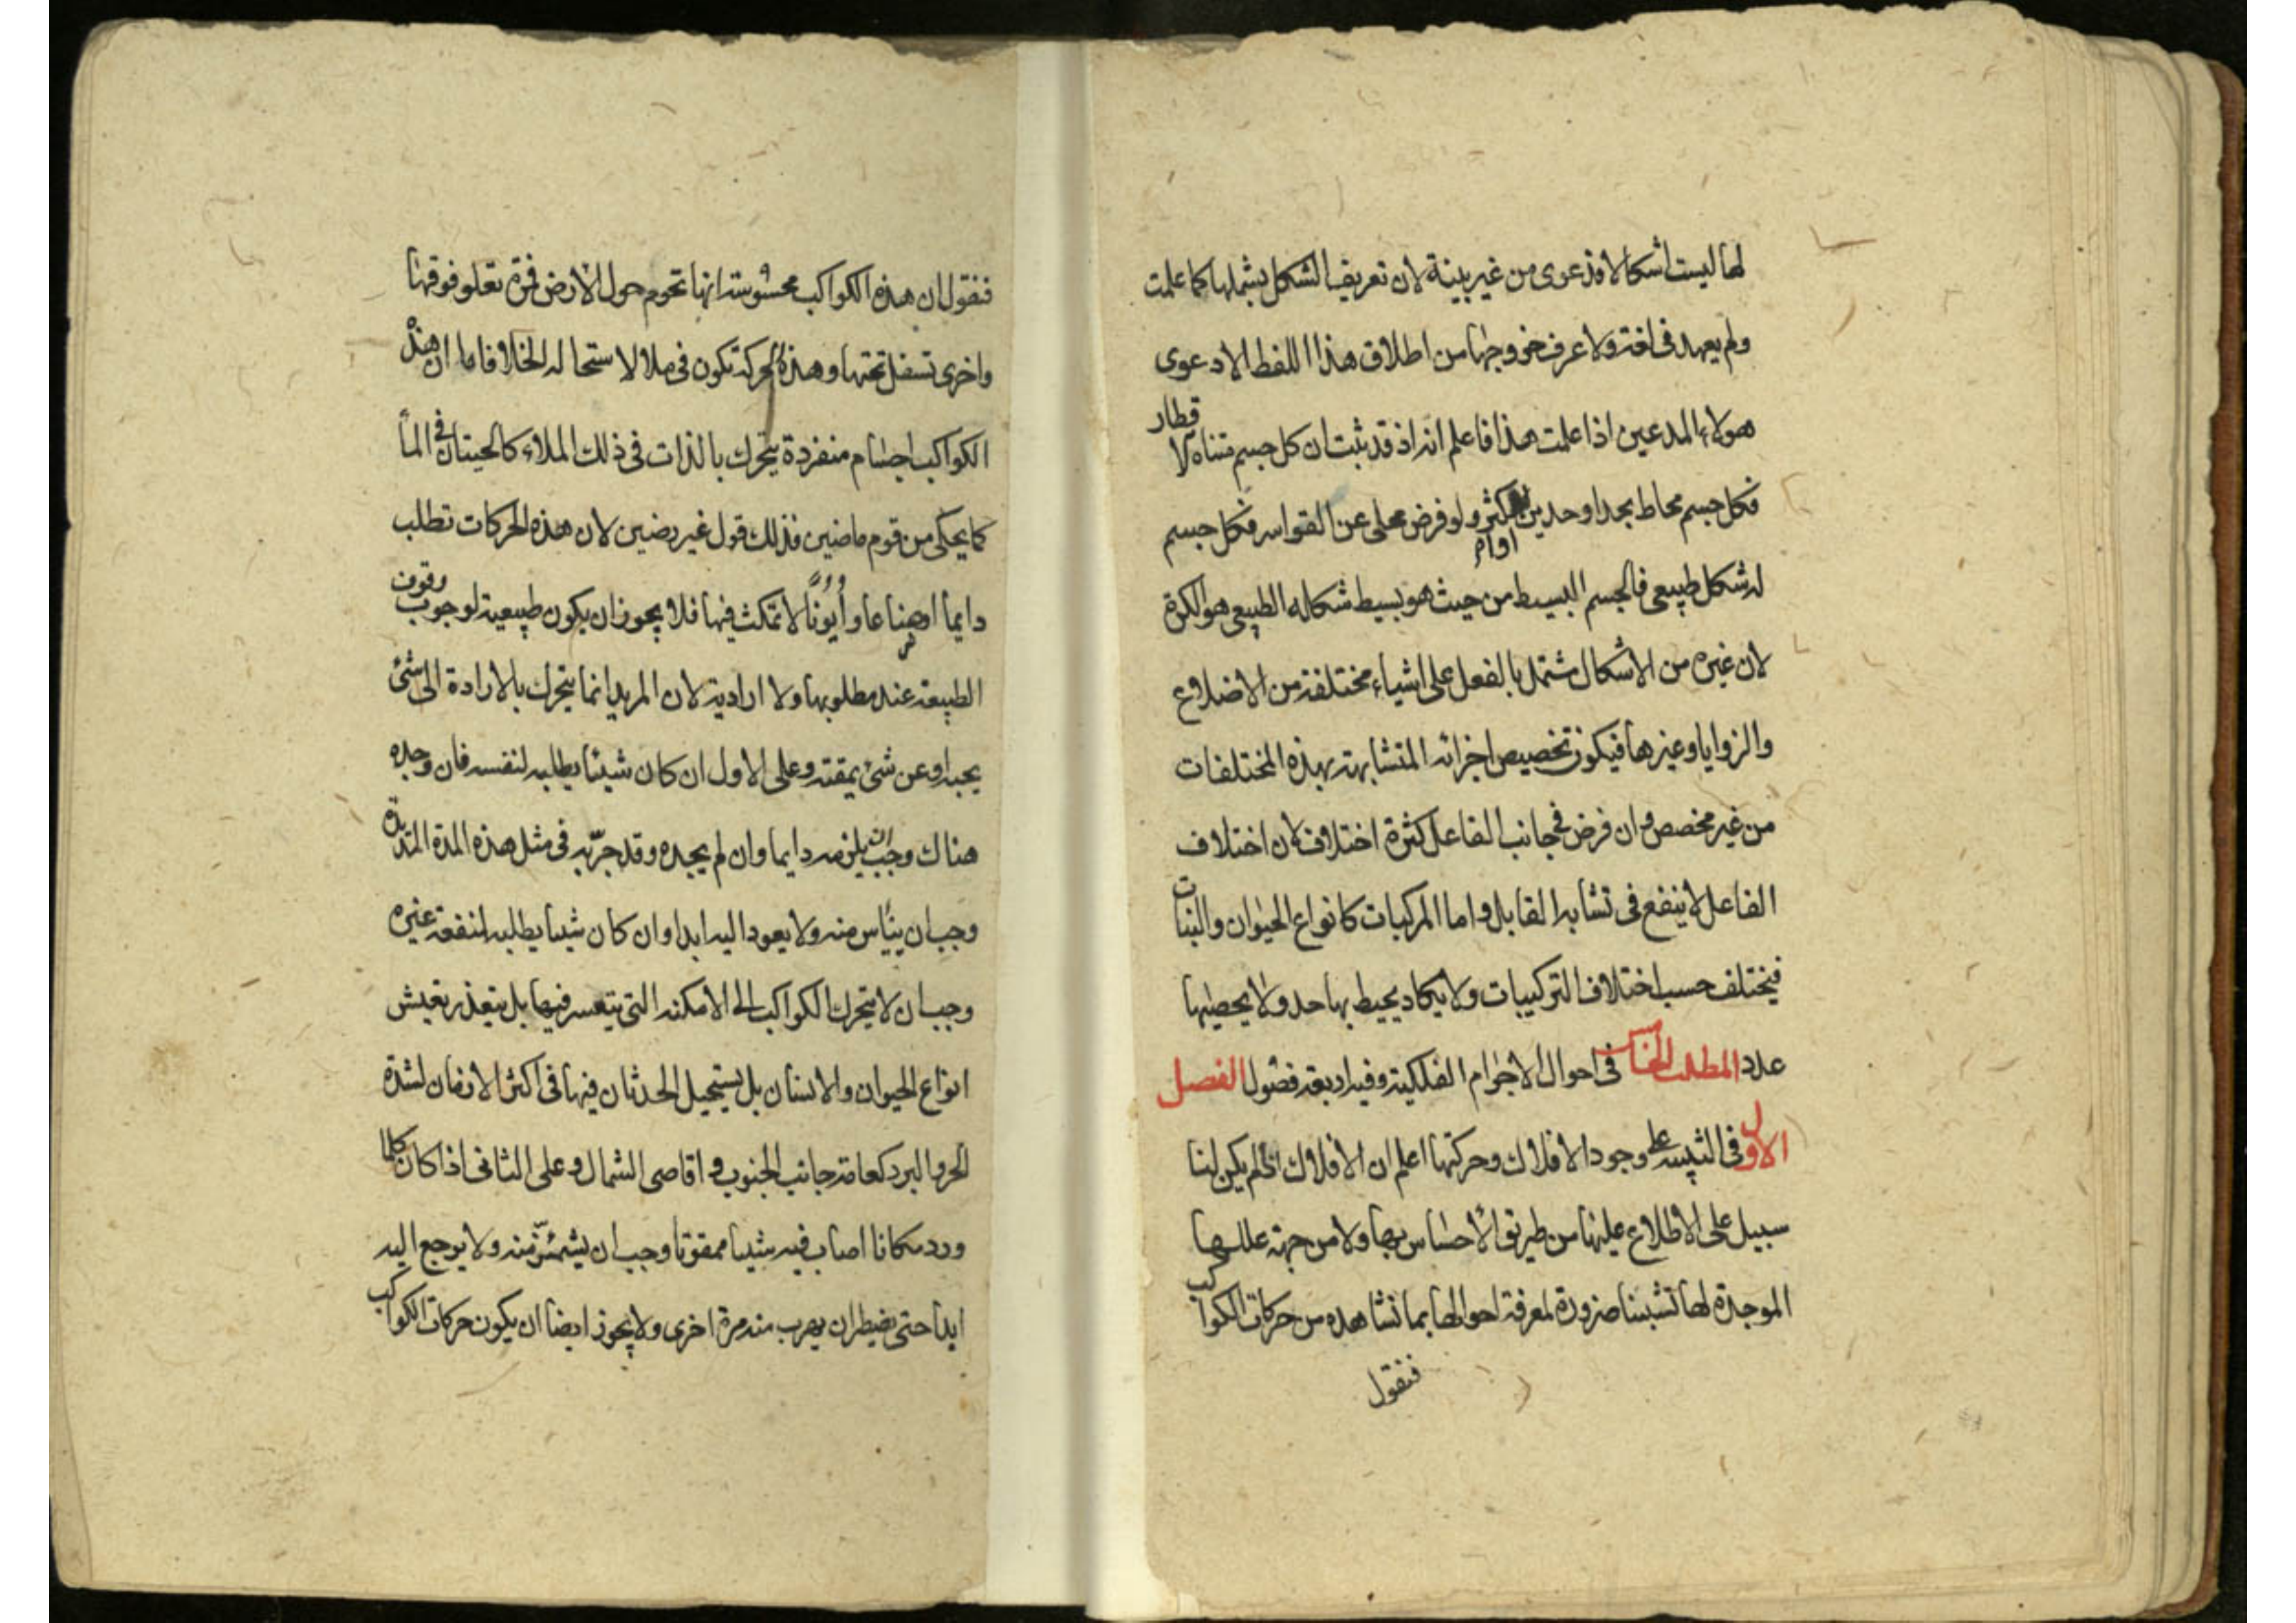 لها ليست أشكالا فدعوى من غير بينة لان تعريف الشكل يشملها كما علمت
ولم يعهد فى لغة ولا عرف خروجها من اطلاق هذا اللفظ الا دعوى
هولاء المدعين اذا علمت هذا فاعلم انه اذ قد ثبت ان كل جسم متناه لا قطار
فكل جسم محاط بحد او حدين او اكثر ولو فرض محلى عن القواسر فكل جسم
له شكل طبيعى فالجسم البسيط من حيث هو بسيط شكله الطبيعى هو الكرة
لان غيره من الاشكال مشتمل بالفعل على اشياء مختلفة من الاضلاع
والزوايا وغيرها فيكون تخصيص اجزائه المتشابهة بهذه المختلفات
من غير مخصص وان فرض فى جانب الفاعل كثرة اختلاف لان اختلاف
الفاعل لا ينفع فى تشابه القابل واما المركبات كانواع الحيوان والنبات
فيختلف حسب اختلاف التركيبات ولا يكاد يحيط بها حد ولا يحصيها
عدد المطلب فى احوال الاجرام الفلكية وفيه اربعة فصول الفصل
الاول فى التنبيه على وجود الافلاك وحركتها اعلم ان الافلاك لم يكن لنا
سبيل على الاطلاع عليها من طريق الاحساس بها ولا من جهة عللها
الموجدة لها تشبثنا ضرورة لمعرفة احوالها بما نشاهده من حركات الكواكب
فنقول
فنقول ان هذه الكواكب محسوسة انها تحوم حول الارض فمرة تعلو فوقها
واخرى تسفل تحتها وهذه الحركة تكون فى ملا لا ستحالة الخلا فاما ان هذه
الكواكب اجسام منفردة يتحرك بالذات فى ذلك الملاء كالحيتان فى الماء
كما يحكى من قوم ماضين فذلك قول غير رضين لان هذه الحركات تطلب
دايما اوضاعا وأيونا لا تمكث فيها فلا يجوز ان يكون طبيعية لوجوب وقوف
الطبيعة عند مطلوبها ولا ارادية لان المريد انما يتحرك بالارادة الى شئ
يحبه او عن شئ يمقته وعلى الاول ان كان شيئا يطلبه لنفسه فان وجده
هناك وجب ان يلزمه دايما وان لم يجده وقد جرّبه فى مثل هذه المدة المتدة
وجب ان ييأس منه ولا يعود اليه ابدا وان كان شيئا يطلبه لنفعة غيره
وجب ان لا يتحرك الكواكب الى الامكنة التى يتعسر فيها بل يتعذر تعيش
انواع الحيوان والانسان بل يستحيل الحدثان فيها فى اكثر الازمان لشدة
الحر والبرد كعامة جانب الجنوب و اقاصى الشمال وعلى الثانى اذا كان كلما
ورد مكانا اصاب فيه شيئا ممقوتا وجب ان يشمئز منه ولا يرجع اليه
ابدا حتى يضطر ان يهرب منه مرة اخرى ولا يجوز ايضا ان يكون حركات الكواكب